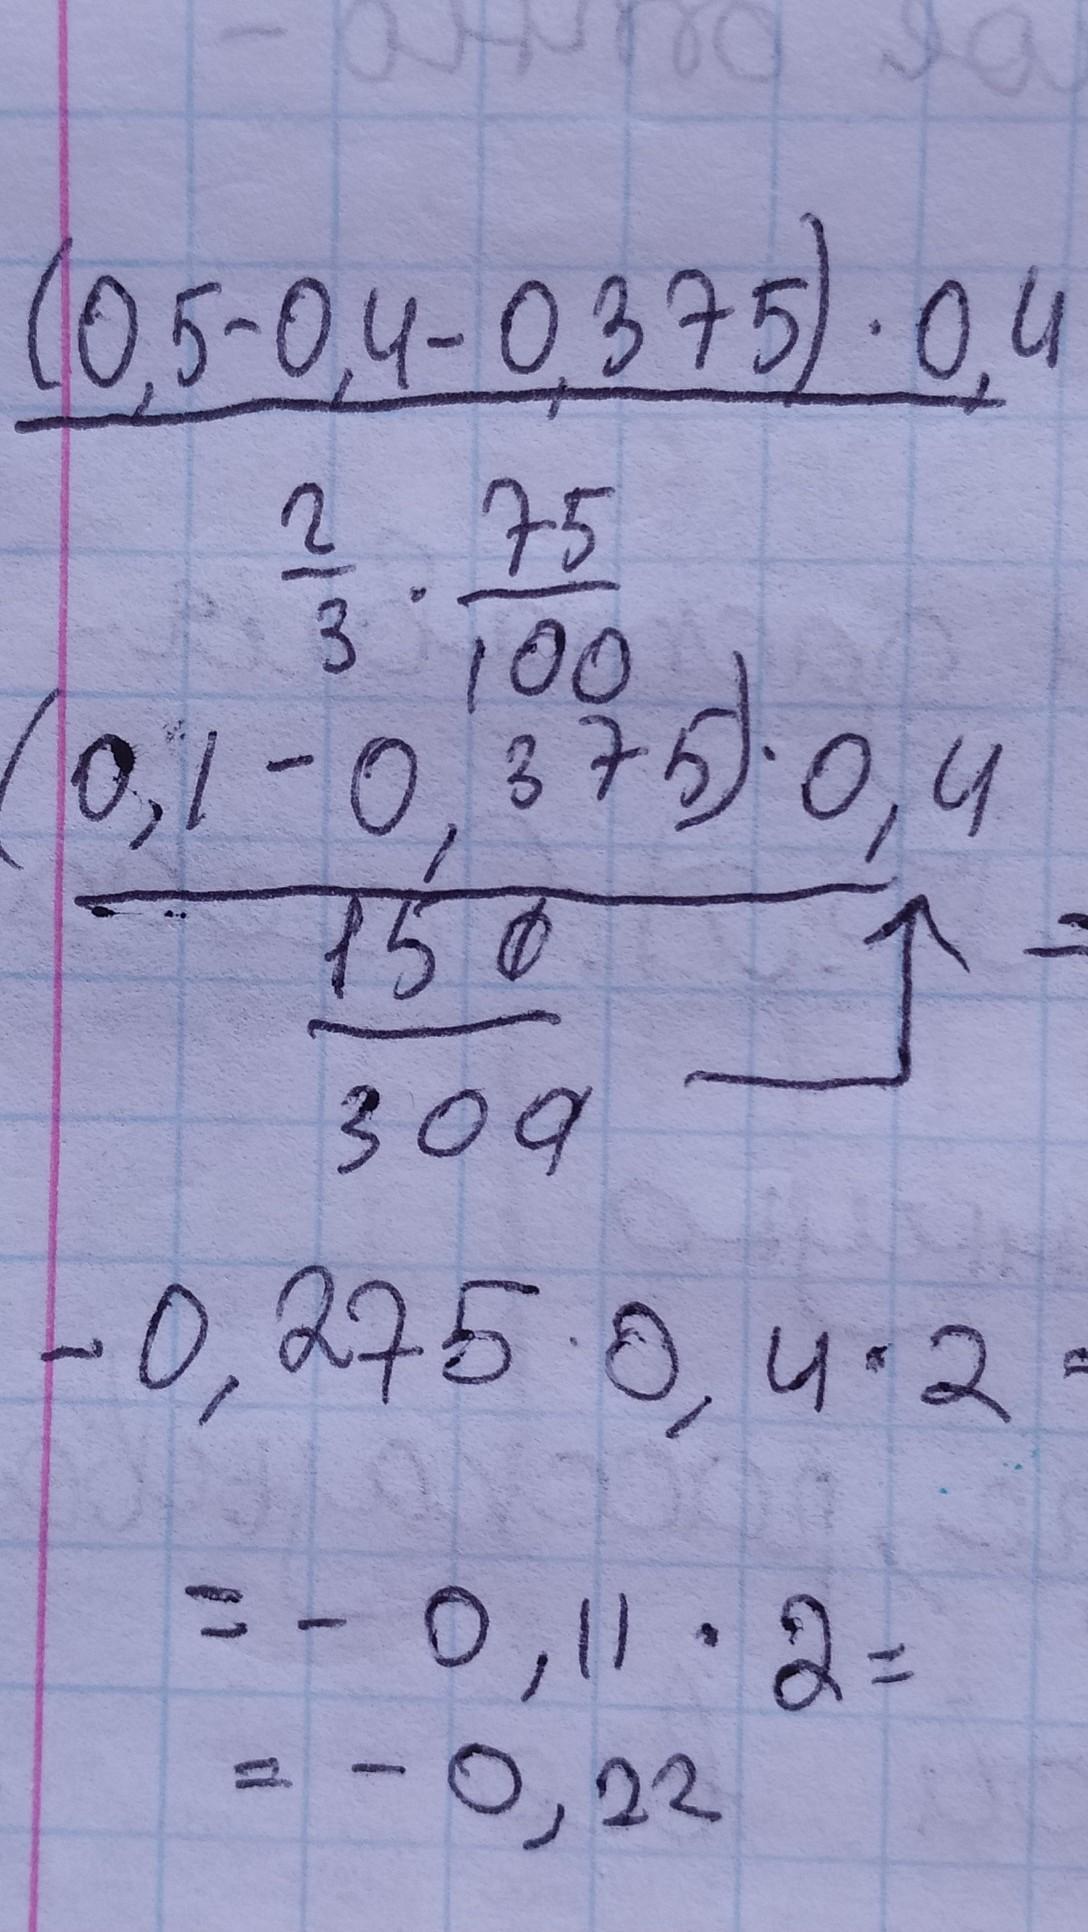 (0,5-0,4-0,375)·0,4
2/3 · 75/100
(0,1-0,375)·0,4
150/300 =
-0,275·0,4·2=
=-0,11·2=
=-0,22